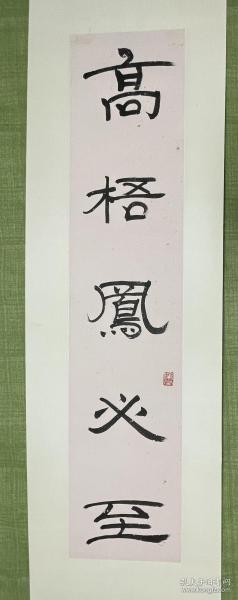 高梧鳳必至
孔夫子旧书网